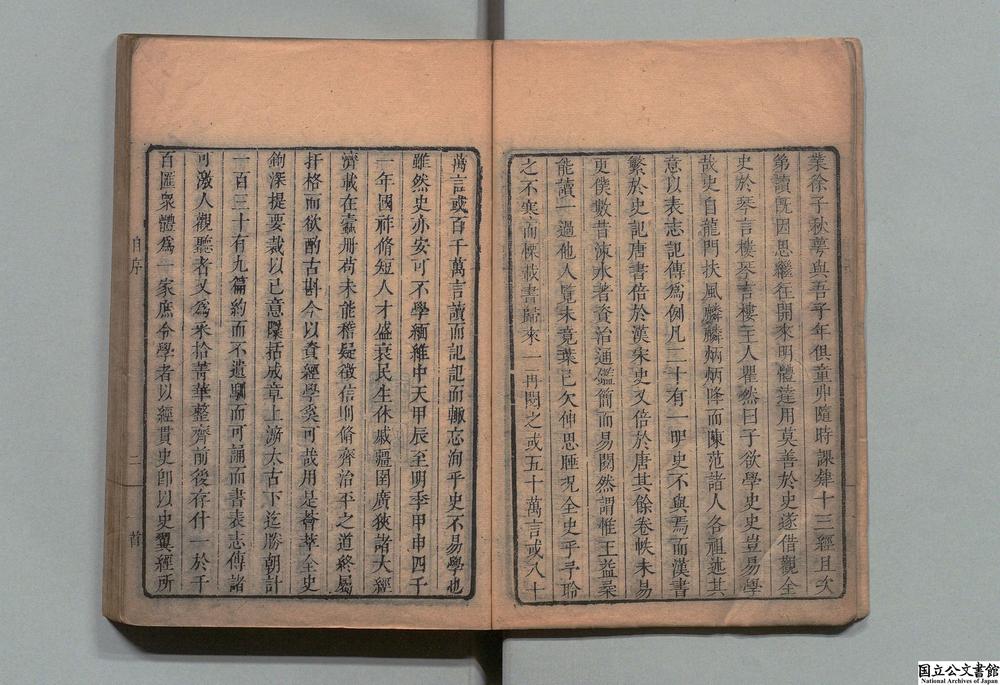 業徐子秋夢與吾子年俱童丱隨時課肄十三經且次
第讀既因思繼往開來明體達用莫善於史遂借觀全
史於琴言樓琴言樓主人瞿然曰子欲學史史豈易學
故史自龍門扶風麟麟炳炳降而陳范諸人各祖述其
意以表志記傳為例凡二十有一明史不與焉而漢書
繁於史記唐書倍於漢宋史又倍於唐其餘卷帙未易
更僕數昔涑水著資治通鑑簡而易閱然謂惟王益柔
能讀一過他人覧未竟葉已欠伸思睡况全史乎予聆
之不寒而慄載書歸來一再閱之或五十萬言或八十
萬言或百千萬言讀而記記而輙忘洵乎史不易學也
雖然史亦安可不學緬維中天甲辰至明季甲申四千
一年國祥脩短人才盛衰民生休戚疆圉廣狹諸大經
濟載在蠧册苟未能稽疑徵信則脩齊治平之道終屬
扞格而欲酌古斟今以資經學奚可哉用是薈萃全史
鉤深提要裁以已意隱括成章上泝太古下迄勝朝計
一百三十有九篇約而不遺馴而可誦而書表志傳諸
可激人觀聽者又為采拾菁華整齊前後存什一於千
百匯衆體為一家庶令學者以經貫史卽以史翼經所
自序
二
首
国立公文書館
National Archives of Japan